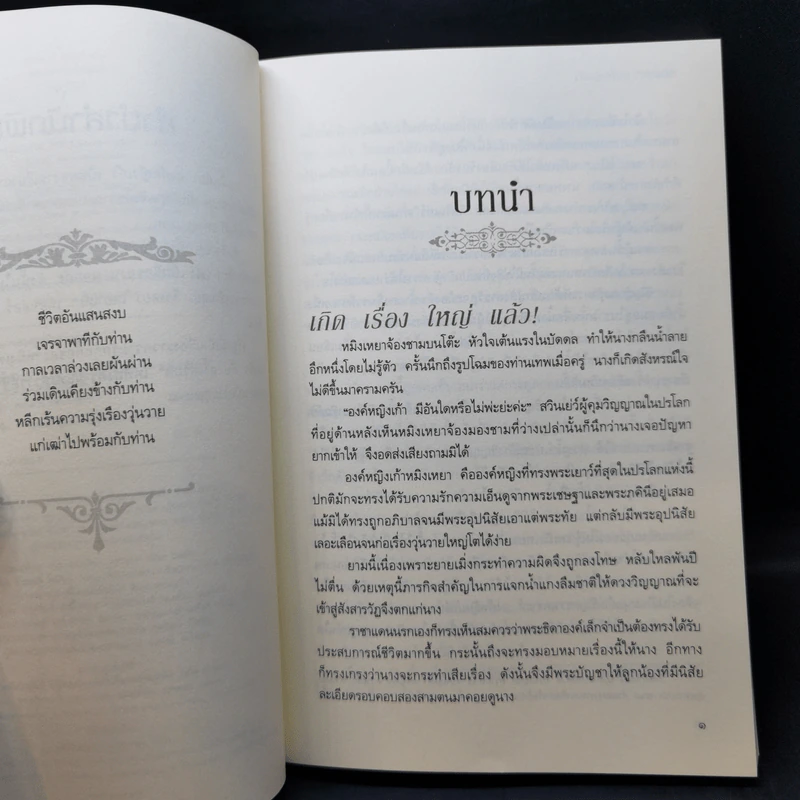 ชีวิตอันแสนสงบ
เจรจาพาทีกับท่าน
กาลเวลาล่วงเลยผันผ่าน
ร่วมเดินเคียงข้างกับท่าน
หลีกเร้นความรุ่งเรืองวุ่นวาย
แก่เฒ่าไปพร้อมกับท่าน
บทนำ
เกิด เรื่อง ใหญ่ แล้ว!
หมิงเหยาจ้องชามบนโต๊ะ หัวใจเต้นแรงในบัดดล ทำให้นางกลืนน้ำลาย
อีกหนึ่งโดยไม่รู้ตัว ครั้นนึกถึงรูปโฉมของท่านเทพเมื่อครู่ นางก็เกิดสังหรณ์ใจ
ไม่ดีขึ้นมาครามครัน
“องค์หญิงเก้า มีอันใดหรือไม่พ่ะย่ะค่ะ” สวินเย่ว์ผู้คุมวิญญาณในปรโลก
ที่อยู่ด้านหลังเห็นหมิงเหยาจ้องมองชามที่ว่างเปล่านั้นก็นึกว่านางเจอปัญหา
ยากเข้าให้ จึงอดส่งเสียงถามมิได้
องค์หญิงเก้าหมิงเหยา คือองค์หญิงที่ทรงพระเยาว์ที่สุดในปรโลกแห่งนี้
ปกติมักจะทรงได้รับความรักความเอ็นดูจากพระเชษฐาและพระภคินีอยู่เสมอ
แม้มิได้ทรงถูกอภิบาลจนมีพระอุปนิสัยเอาแต่พระทัย แต่กลับมีพระอุปนิสัย
เลอะเลือนจนก่อเรื่องวุ่นวายใหญ่โตได้ง่าย
ยามนี้เนื่องเพราะยายเมิ่งกระทำความผิดจึงถูกลงโทษ หลับใหลพันปี
ไม่ตื่น ด้วยเหตุนี้ภารกิจสำคัญในการแจกน้ำแกงลืมชาติให้ดวงวิญญาณที่จะ
เข้าสู่สังสารวัฏจึงตกแก่นาง
ราชาแดนนรกเองก็ทรงเห็นสมควรว่าพระธิดาองค์เล็กจำเป็นต้องทรงได้รับ
ประสบการณ์ชีวิตมากขึ้น กระนั้นถึงจะทรงมอบหมายเรื่องนี้ให้นาง อีกทาง
ก็ทรงเกรงว่านางจะกระทำเสียเรื่อง ดังนั้นจึงมีพระบัญชาให้ลูกน้องที่มีนิสัย
ละเอียดรอบคอบสองสามตนมาคอยดูนาง
๑